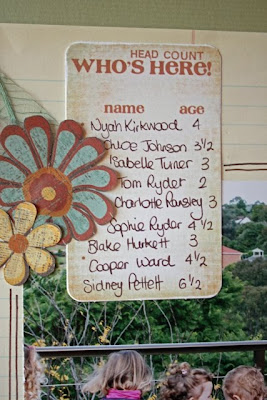 HEAD COUNT
WHO'S HERE!
name age
Nyah Kirkwood 4
Chloe Johnson 3½
Isabelle Turner 3
Tom Ryder 2
Charlotte Ransley 3
Sophie Ryder 4½
Blake Hurkett 3
Cooper Ward 4½
Sidney Pettett 6½